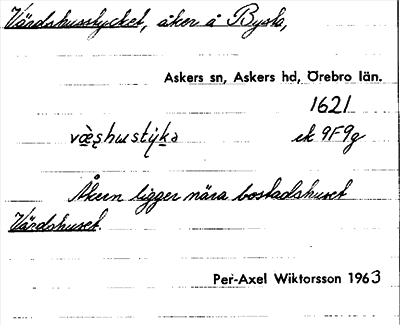 Värdshusstycket, åker å Bysta,
Askers sn, Askers hd, Örebro län.
1621
væ̀ʂhusty̆kə ek 9F9g
Åkern ligger nära bostadshuset
Värdshuset.
Per-Axel Wiktorsson 1963